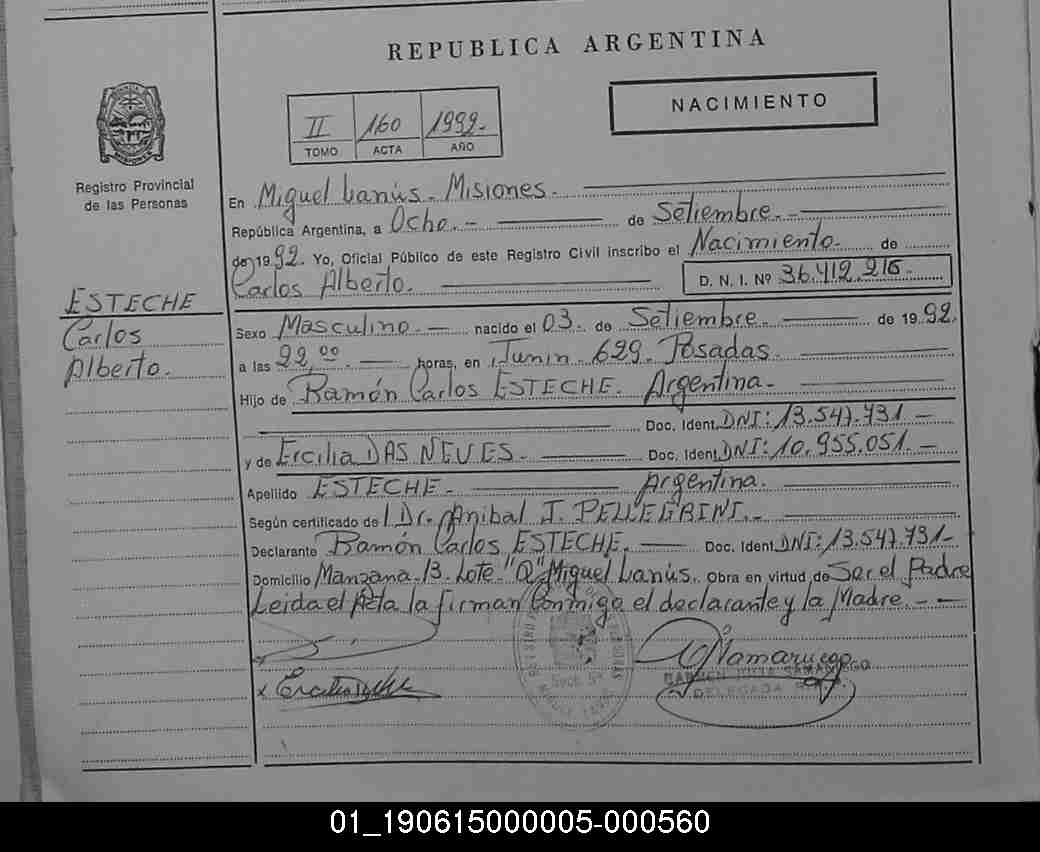 REPUBLICA ARGENTINA
NACIMIENTO
II 160 1992.-
TOMO ACTA AÑO
MISIONES
Registro Provincial
de las Personas
En Miguel Lanús - Misiones.-
República Argentina, a Ocho.- de Setiembre.-
de 1992. Yo, Oficial Público de este Registro Civil inscribo el Nacimiento de
Carlos Alberto. D. N. I. Nº 36.412.216.-
ESTECHE
Carlos
Alberto.
Sexo Masculino.- nacido el 03. de Setiembre.- de 1992.
a las 22,00 horas, en Junin 629. Posadas.
Hijo de Ramón Carlos ESTECHE. Argentina.-
Doc. Ident. DNI: 13.547.731.-
y de Ercilia DAS NEVES.- Doc. Ident. DNI: 10.955.051.-
Apellido ESTECHE.- Argentina.
Según certificado del Dr. Anibal J. PELLEGRINI.-
Declarante Ramón Carlos ESTECHE.- Doc. Ident. DNI: 13.547.731-
Domicilio Manzana-13-Lote "Q" Miguel Lanús. Obra en virtud de Ser el Padre
Leida el Acta la firman Conmigo el declarante y la Madre.-
CARMEN SAMANIEGO
DELEGADA
MIGUEL LANUS
01_190615000005-000560